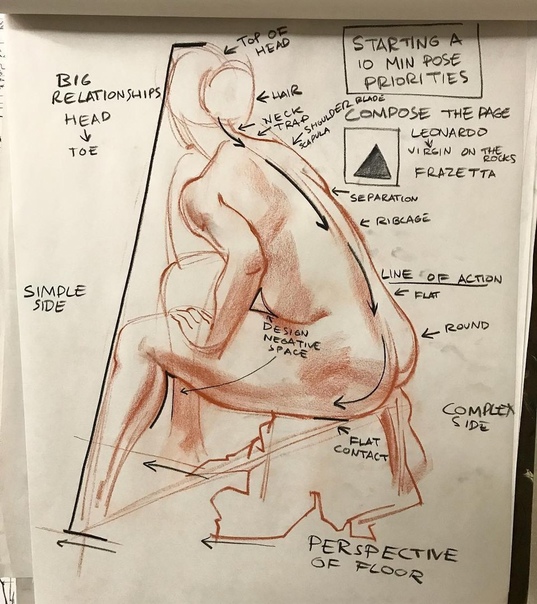 STARTING A
10 MIN POSE
PRIORITIES
TOP OF
HEAD
BIG
RELATIONSHIPS
HEAD
↓
TOE
HAIR
NECK
TRAP
SHOULDER BLADE
SCAPULA
COMPOSE THE PAGE
LEONARDO
VIRGIN ON THE
ROCKS
FRAZETTA
SEPARATION
RIBCAGE
LINE OF ACTION
FLAT
ROUND
SIMPLE
SIDE
DESIGN
NEGATIVE
SPACE
COMPLEX
SIDE
FLAT
CONTACT
PERSPECTIVE
OF FLOOR